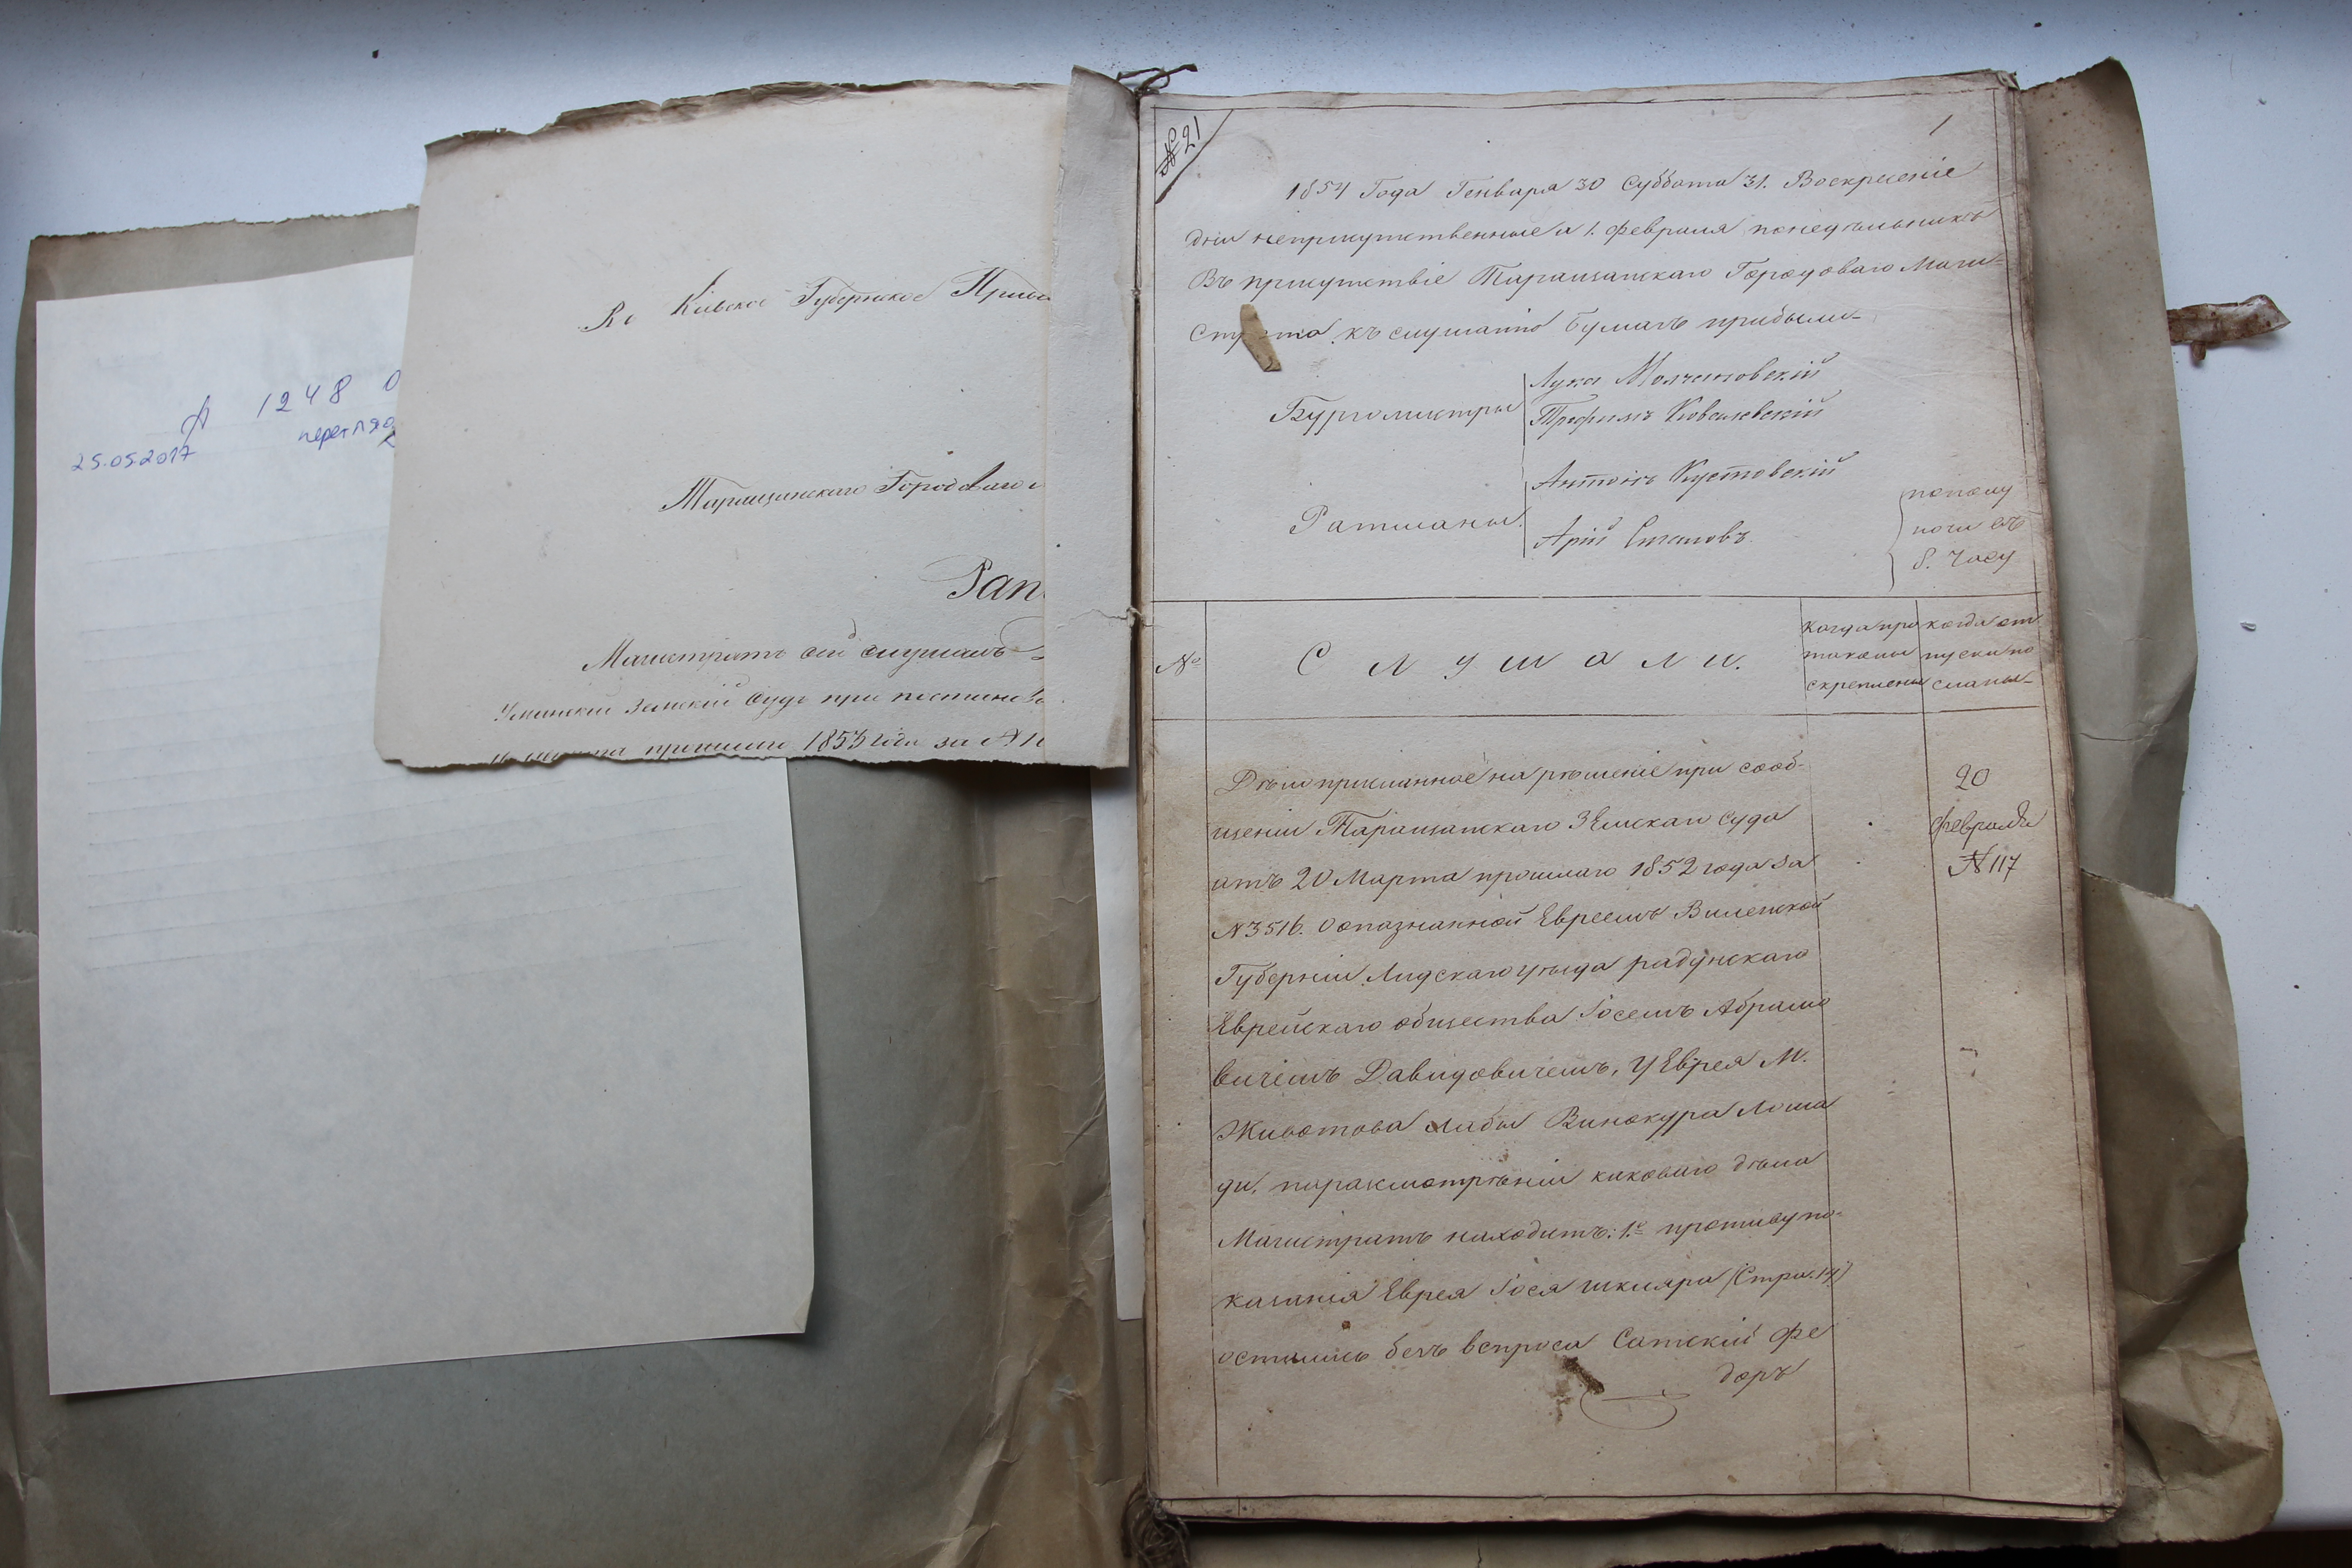 А 1248 О
перегляд
25.05.2017
Въ Кіевское Губернское Правл
Таращанскаго Городоваго
Рап
Магистратъ сей слушавъ
Уманскій Земскій Судъ при
прошлаго 1853 года за № 
№ 21
1
1854 Года Генваря 30 Суббота 31. Воскресеніе
дни неприсутственные а 1. февраля понедѣльникъ
Въ присутствіе Таращанскаго Городоваго Маги-
страта къ слушанію бумагъ прибыли-
Бургомистры
Лука
Трофимъ Ковалевскій
Ратманы.
Антонъ Кустовскій
Арій
пополу
ночи въ
8. Часу
№
Слушали.
Когда про
токолы
скреплены
когда от
пуски по
сланы-
Дѣло присланное на рѣшеніе при сооб-
щеніи Таращанскаго Земскаго Суда
отъ 20 Марта прошлаго 1852 года за
№ 3516. О опазнанной Евреемъ Виленской
Губерніи Лидскаго уѣзда радунскаго
Еврейскаго общества Іосемъ Абрамо
вичемъ Давидовичемъ, у Еврея М.
Животова Лабы Винокура лоша
ди, по разсмотрѣніи каковаго дѣла
Магистратъ находитъ: 1.е противу по-
казанія Еврея Іося шкляра (Стра. 14)
остались безъ вспроса Сотскій Фе
доръ
20
февраля
№ 117